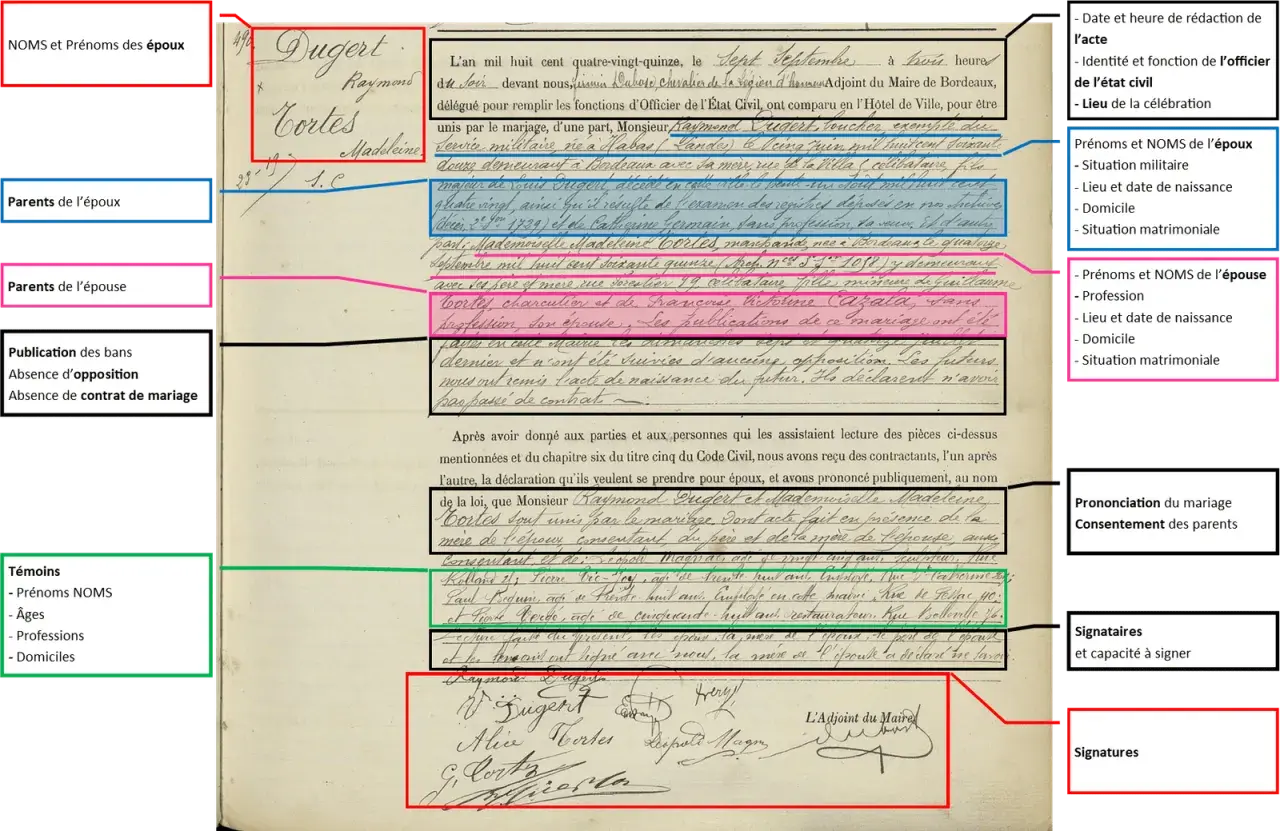 NOMS et Prénoms des époux
Parents de l'époux
Parents de l'épouse
Publication des bans
Absence d'opposition
Absence de contrat de mariage
Témoins
- Prénoms NOMS
- Âges
- Professions
- Domiciles
490
Dugert
Raymond
x
Tortes
Madeleine
L'an mil huit cent quatre-vingt-quinze, le Sept Septembre à trois heures
du Soir devant nous, firmin Dubosc, chevalier de la Légion d'honneur Adjoint du Maire de Bordeaux,
délégué pour remplir les fonctions d'Officier de l'État Civil, ont comparu en l'Hôtel de Ville, pour être
unis par le mariage, d'une part, Monsieur Raymond Dugert, boucher, exempté du
Service militaire, né à Habas (Landes) le cinq juin mil huit cent soixante
douze, demeurant à Bordeaux avec sa mère, rue de la Villa, célibataire, fils
majeur de Louis Dugert, décédé en cette ville le vingt-un Août mil huit cent
quatre vingt, ainsi qu'il résulte de l'examen des registres déposés en nos Archives
et de Catherine Germain, sans profession, sa veuve. Et d'autre
part, Mademoiselle Madeleine Tortes, marchande, née à Bordeaux le quatorze
Septembre mil huit cent soixante quinze y demeurant
avec ses père et mère, rue 29 célibataire, fille mineure de Guillaume
Tortes, charcutier et de Françoise Victorine Cazala, sans
profession, son épouse. Les publications de ce mariage ont été
faites en cette Mairie les dimanches sept et quatorze juillet
dernier et n'ont été suivies d'aucune opposition. Les futurs
nous ont remis l'acte de naissance du futur. Ils déclarent n'avoir
pas passé de contrat
Après avoir donné aux parties et aux personnes qui les assistaient lecture des pièces ci-dessus
mentionnées et du chapitre six du titre cinq du Code Civil, nous avons reçu des contractants, l'un après
l'autre, la déclaration qu'ils veulent se prendre pour époux, et avons prononcé publiquement, au nom
de la loi, que Monsieur Raymond Dugert et Mademoiselle Madeleine
Tortes sont unis par le mariage, dont acte fait en présence de la
mère de l'époux consentant, du père et de la mère de l'épouse, aussi
consentant et de: Léopold Magnan, agé de vingt cinq ans, Rue
Pierre agé de trente huit ans, Employé, Rue Ste Catherine
Paul Beguin, agé de trente huit ans, Employé en cette mairie, Rue de Pessac
et Pierre agé de cinquante huit ans, restaurateur, Rue Belleville 76.
Lecture faite du présent, les époux, la mère de l'époux, le père de l'épouse
et les témoins ont signé avec nous, la mère de l'épouse a déclaré ne savoir.
Raymond Dugert
Vve Dugert
Alice Tortes
Léopold Magn
L'Adjoint du Maire
Dubosc
G. Tortes
- Date et heure de rédaction de
l'acte
- Identité et fonction de l'officier
de l'état civil
- Lieu de la célébration
Prénoms et NOMS de l'époux
- Situation militaire
- Lieu et date de naissance
- Domicile
- Situation matrimoniale
- Prénoms et NOMS de l'épouse
- Profession
- Lieu et date de naissance
- Domicile
- Situation matrimoniale
Prononciation du mariage
Consentement des parents
Signataires
et capacité à signer
Signatures